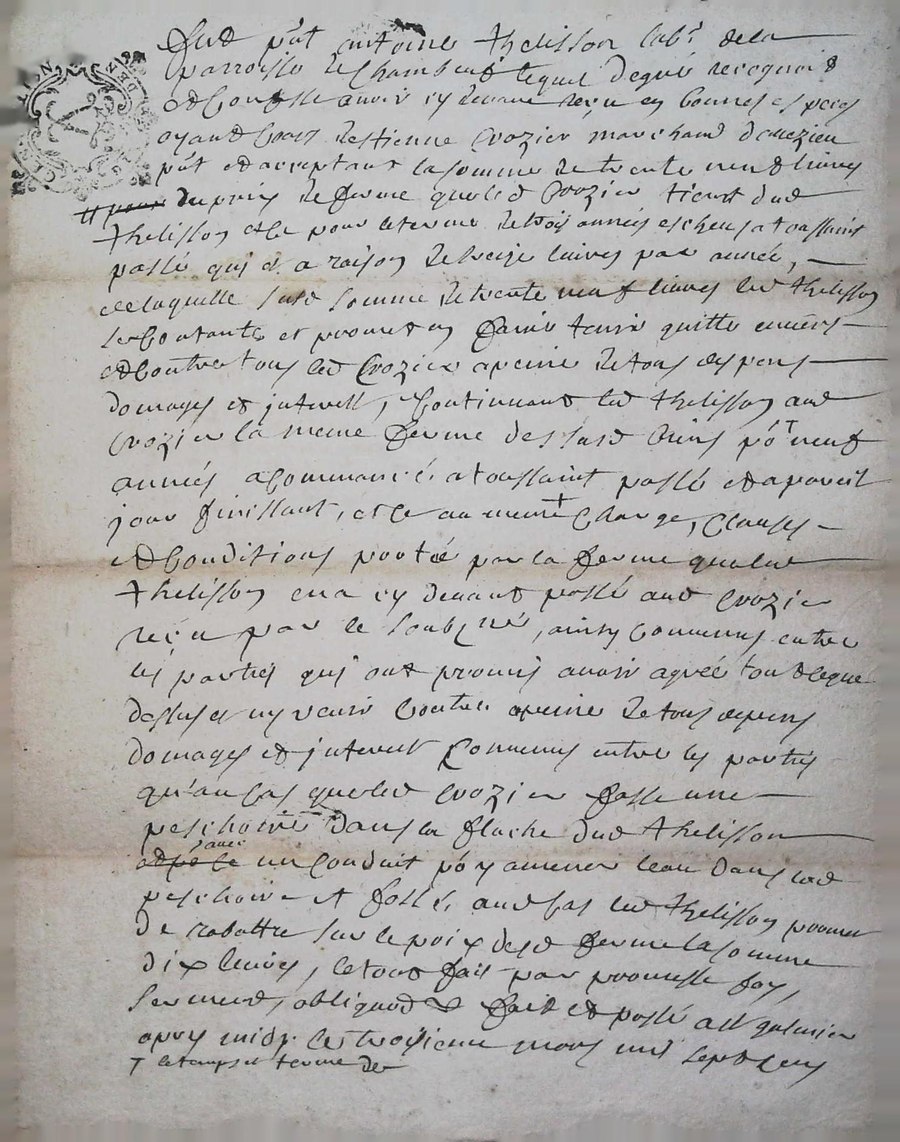 Fut p'nt antoine thelisson lab.r de la
parroisse de Chambeuf lequel de gré recognoit
et Confesse avoir cy devant reçu en bonnes especes
ayant cours d'estienne Crozier marchand
p'nt et acceptant la somme de trente neuf livres
du prix de ferme que led Crozier tient dud
thelisson et ce pour le terme de trois années escheus a toussaint
passé qui est a raison de treize livres par année,
de laquelle susd somme de trente neuf livres led thelisson
se Contante et promet en faire tenir quitte envers
et Contre tous led Crozier a peine de tous despens
domages et interest, Continuant led thelisson aud
Crozier la meme ferme des susd p'o T neuf
années a Commancé a toussaint passé et a pareil
jour finissant, et ce au meme + Charge, Clauses
et Conditions porté par la ferme que led
thelisson en a cy devant passé aud Crozier
reçu par le soubz.né, ainsy Convenus entre
les parties qui ont promis avoir agreé tout ce que
dessus et n'y venir Contre a peine de tous despens
domages et interest Convenus entre les parties
qu'au Cas que led Crozier fasse une
peschoire dans la flache dud thelisson
avec
un Conduit p'o y amener l'eau dans lad
peschoire et fossé, aud Cas led thelisson promet
de rabattre sur le prix de sd ferme la somme
dix livres, le tout fait par promesse foy,
serment, obligaõn fait et passé a
apres midy le troisieme mars mil sept Cens
T le temps et terme de